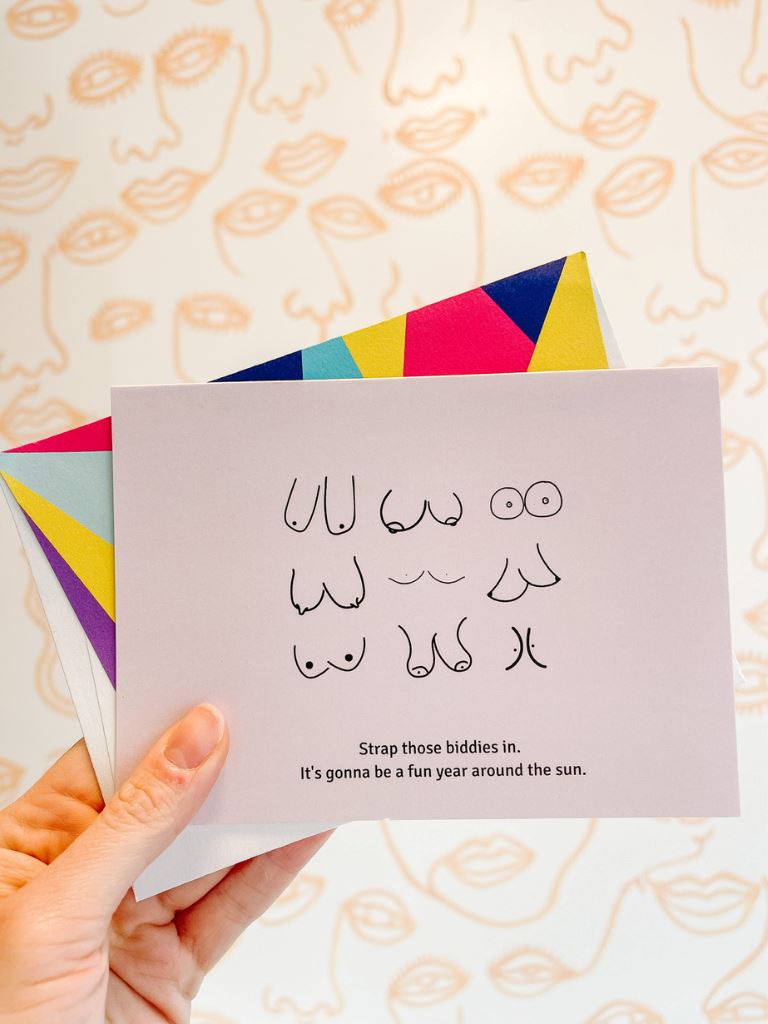 Strap those biddies in.
It's gonna be a fun year around the sun.